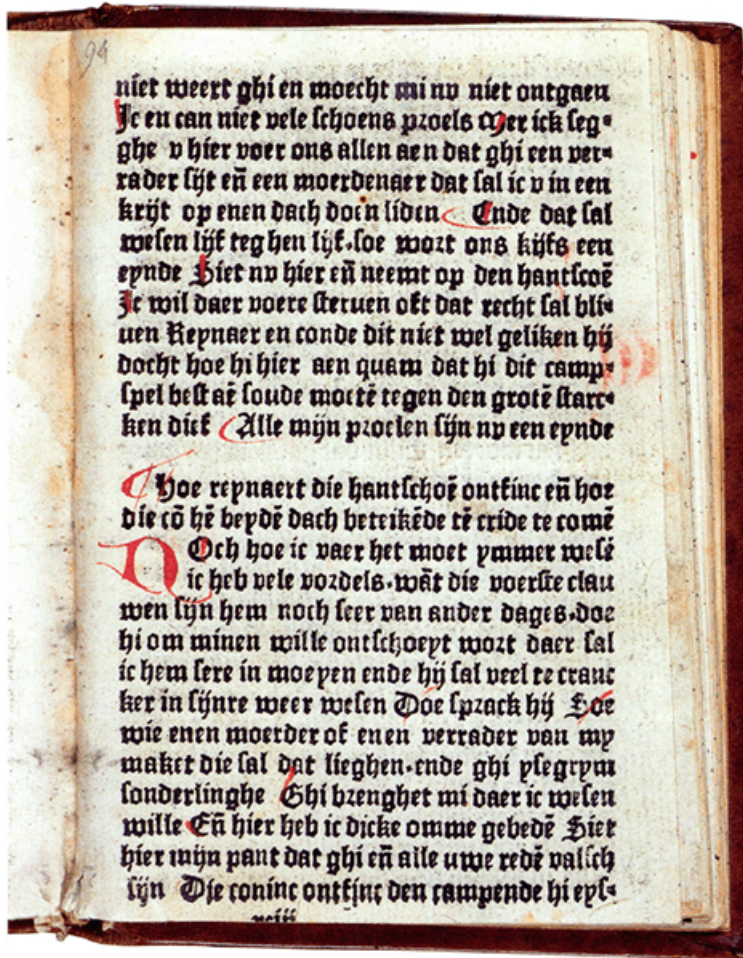 94
niet weert ghi en moecht mi nv niet ontgaen
Jc en can niet vele schoens proels Mer ick seg⸗
ghe v hier voer ons allen aen dat ghi een ver⸗
rader sijt en̄ een moerdenaer dat sal ic v in een
krijt op enen dach doen liden Ende dat sal
wesen lijf teghen lijf·soe wort ons kijfs een
eynde Siet nv hier en̄ neemt op den hantscoē
Jc wil daer voere steruen oft dat recht sal bli⸗
uen Reynaer en conde dit niet wel geliken hij
docht hoe hi hier aen quam dat hi dit camp⸗
spel bestaē soude moctē tegen den grotē starc⸗
ken dief Alle mijn proelen sijn nv een eynde
Hoe reynaert die hantschoē ontfinc en̄ hoe
die cō hē beydē dach beteikēde tē cride te comē
DOch hoe ic vaer het moet ymmer wesē
ic heb vele vordels·wāt die voerste clau
wen sijn hem noch seer van ander dages·doe
hi om minen wille ontschoeyt wort daer sal
ic hem sere in moeyen ende hij sal veel te cranc
ker in sijnre weer wesen Doe sprack hij Soe
wie enen moerder of enen verrader van my
maket die sal dat lieghen·ende ghi ysegrym
sonderlinghe Ghi brenghet mi daer ic wesen
wille En̄ hier heb ic dicke omme gebedē Siet
hier mijn pant dat ghi en̄ alle uwe redē valsch
sijn Die coninc ontfinc den campende hi eys⸗